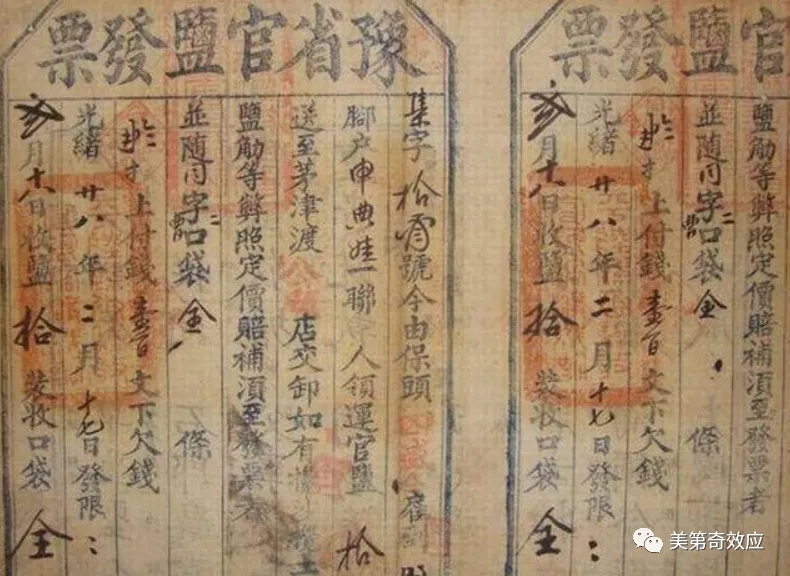 豫省官鹽發票
集字拾 號今由保頭
腳户申典娃一聯 人領運官鹽拾
送至茅津渡 店交卸如有攙
鹽觔等弊照定價賠補須至發票者
並随付字口袋全條
上付錢壹百文下欠錢
光緒廿八年二月十七日發限
月十八日收鹽拾裝收口袋全
官鹽發票
鹽觔等弊照定價賠補須至發票者
並随付字口袋全條
上付錢壹百文下欠錢
光緒廿八年二月十七日發限
月十八日收鹽拾裝收口袋全
美第奇效应